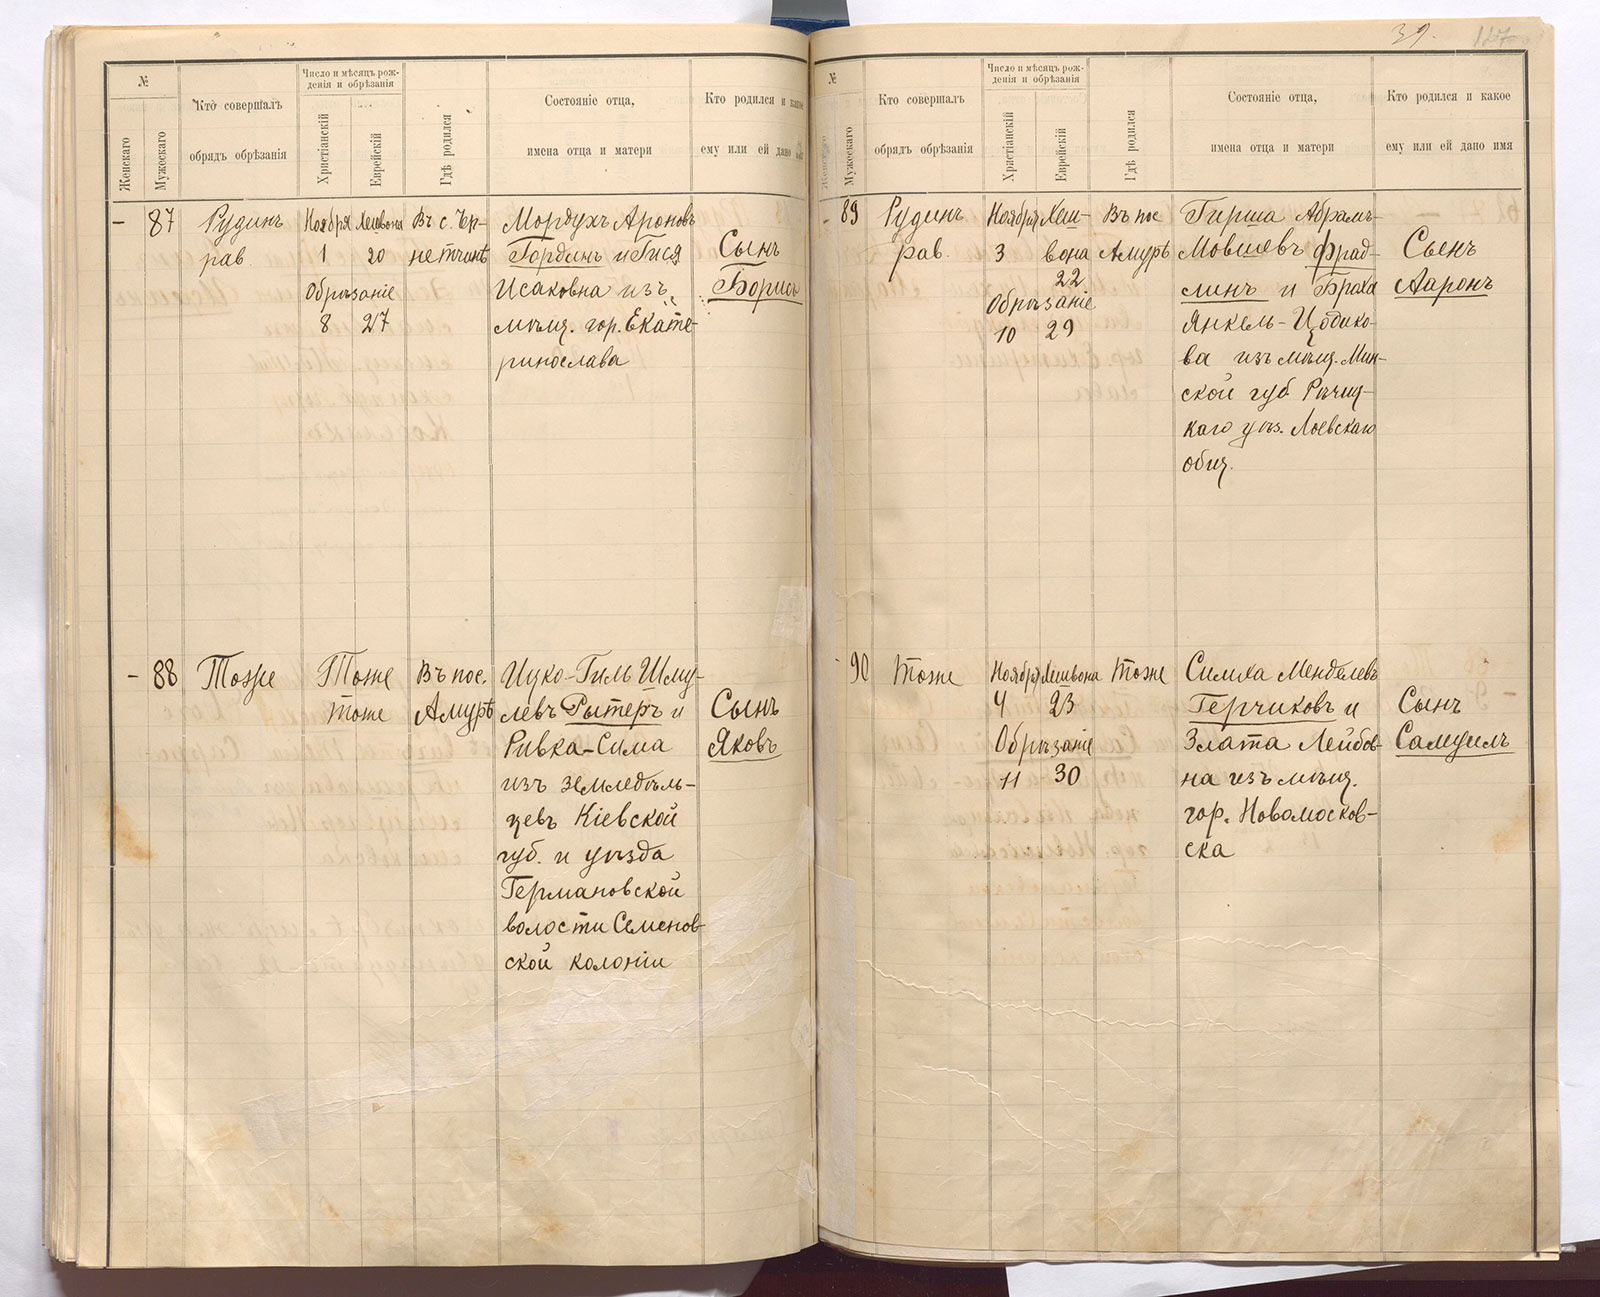 №
Женскаго
Мужескаго
Кто совершалъ
обрядъ обрѣзанія
Число и мѣсяцъ рож-
денія и обрѣзанія
Христіанскій
Еврейскій
Гдѣ родился
Состояніе отца,
имена отца и матери
Кто родился и какое
ему или ей дано
– 87
Рудинъ
рав.
Ноября
1
Обрѣзаніе
8
Хешвона
20
27
Въ с. Чер-
нетчинѣ
Мордухъ Ароновъ
Гординъ и Гися
Исаковна изъ
мѣщ. гор. Екате-
ринослава
Сынъ
Борисъ
– 88
Тоже
Тоже
тоже
Въ пос.
Амурѣ
Ицко-Гиль Шму-
левъ Рытеръ и
Ривка-Сима
изъ земледѣль-
цевъ Кіевской
губ. и уѣзда
Германовской
волости Семенов-
ской колоніи
Сынъ
Яковъ
39.
127
№
Женскаго
Мужескаго
Кто совершалъ
обрядъ обрѣзанія
Число и мѣсяцъ рож-
денія и обрѣзанія
Христіанскій
Еврейскій
Гдѣ родился
Состояніе отца,
имена отца и матери
Кто родился и какое
ему или ей дано имя
– 89
Рудинъ
рав.
Ноября
3
Обрѣзаніе
10
Хеш-
вона
22
29
Въ пос
Амурѣ
Гирша Абрамъ-
Мовшевъ Фрад-
линъ и Браха
Янкель-Цодико-
ва изъ мѣщ. Мин-
ской губ. Рѣчиц-
каго уѣз. Лоевскаго
общ.
Сынъ
Ааронъ
– 90
тоже
Ноября
4
Обрѣзаніе
11
Хешвона
23
30
тоже
Симха Менделевъ
Герчиковъ и
Злата Лейбов-
на изъ мѣщ.
гор. Новомосков-
ска
Сынъ
Самуилъ